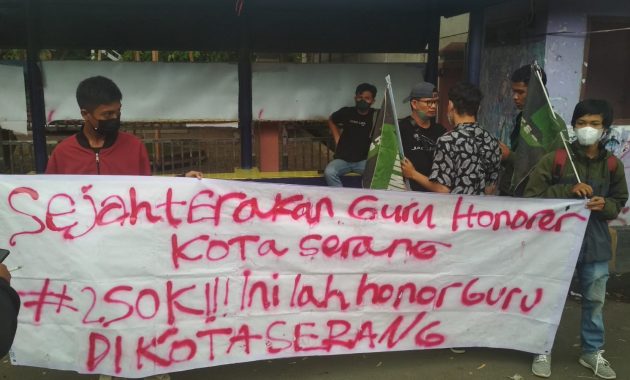 SEjAhtERAKAN GuRu HonoreR
KOTA SeRANG
#250K!!! InilAh honorGuRu
DIKOTASERANG